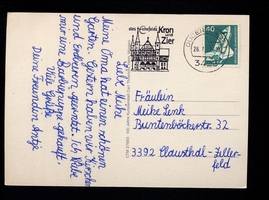 Liebe Meike
Meine Oma hat einen schönen
Garten. Gestern haben wir Kirschen
und Erdbeeren geerntet. Ich habe
mir eine
gekauft.
Viele Grüße
Deine Freundin Antje
Kron
Zier
40
Fräulein
Meike Lenk
Buntenböckerstr. 32
3392 Clausthal-Zeller-
feld